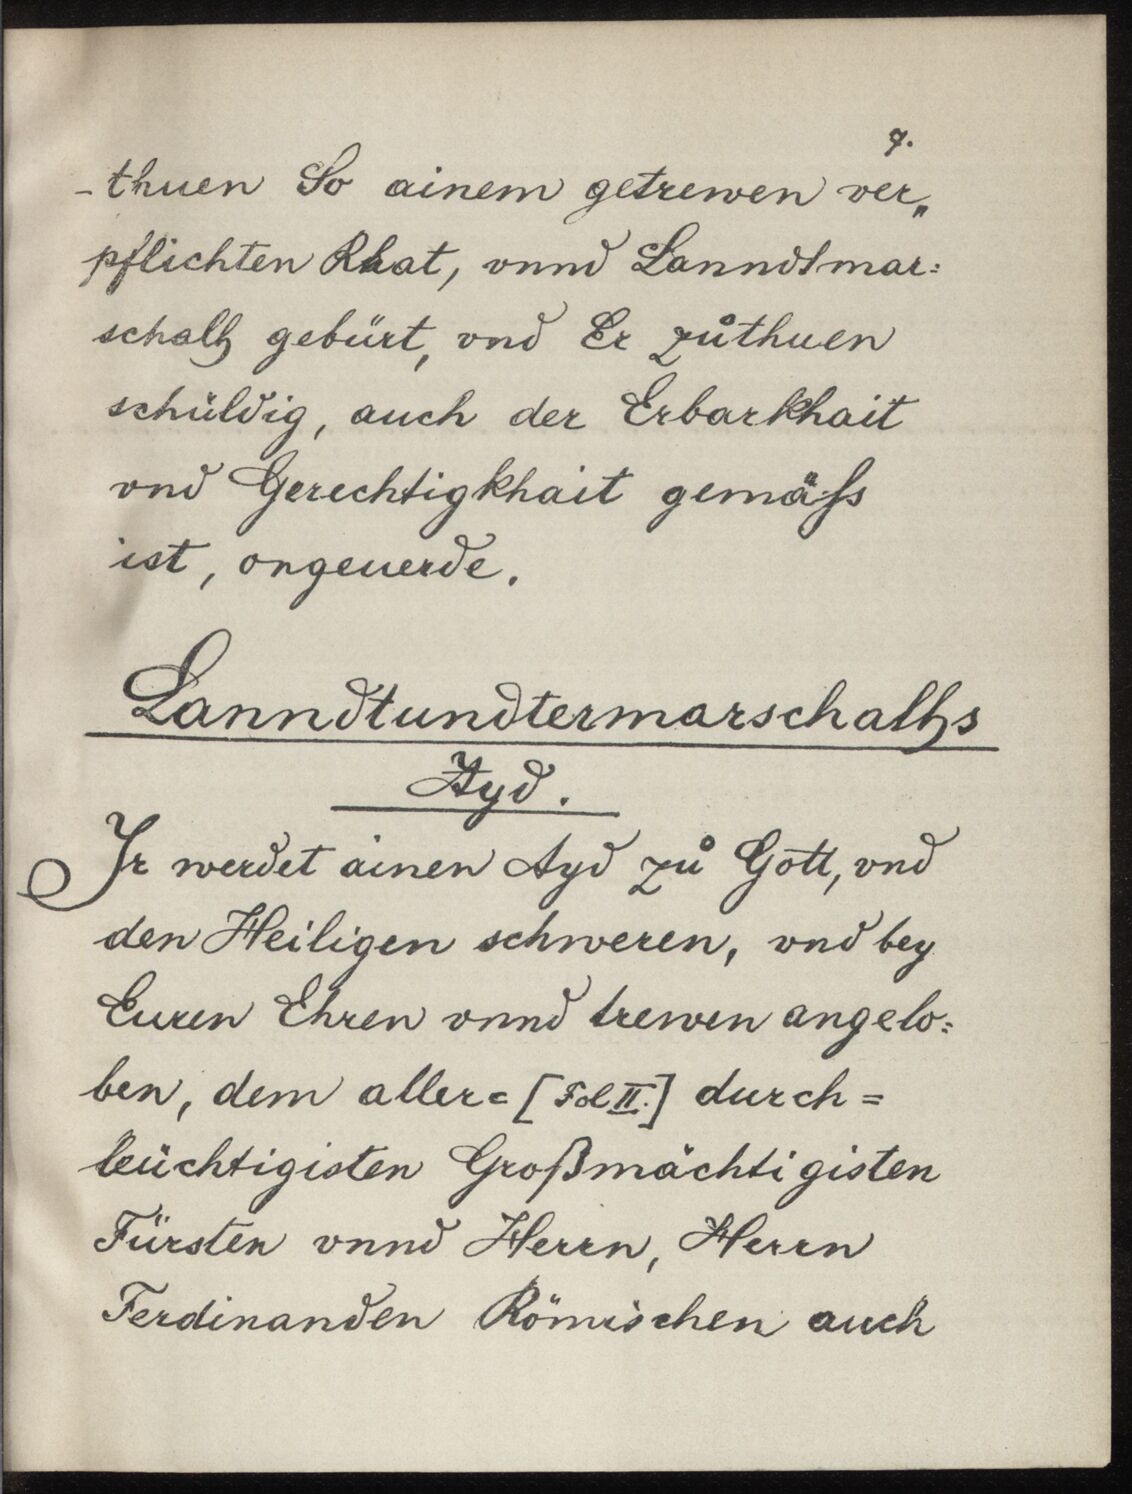 7.
-thuen So ainem getrewen ver„
pflichten Rhat, vnnd Lanndtmar=
schalh gebürt, vnd Er zůthuen
schüldig, auch der Erbarkhait
vnd Gerechtigkhait gemäss
ist, ongeuerde.
Lanndtundtermarschalhs
Ayd.
Jr werdet ainen Ayd zů Gott, vnd
den Heiligen schweren, vnd bey
Euren Ehren vnnd trewen angelo=
ben, dem aller= [Fol II.] durch=
leüchtigisten Großmächtigisten
Fürsten vnnd Herrn, Herrn
Ferdinanden Römischen auch